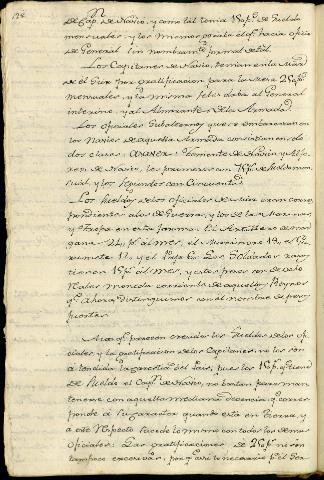 de Capn. de Navio, y como tal tenia 150 ps. de sueldo
mensuales, y los mismos por la el qe. hacia oficio
de General sin nombramto. formal de tal.
Los Capitanes de Navio, tenian en la Mar
de el Sur por gratificacion para la Mesa 250 ps.
mensuales, y la misma se les daba al General
interino, y al Almirante de la Armada.
Los oficiales Subalternos que se embarcaban en
los Navios de aquella Armada consistian en solo
dos clases: Teniente de Navio y Alfe-
rez de Navio, los primeros con ps. de sueldo men-
sual, y los segundos con Cincuenta.
Los sueldos de los oficiales de Mar eran corres-
pondientes a los de Guerra, y los de la Marine-
y tropa en esta forma. El Artillero de mar
gana 24 ps. al mes, el Marinero 18, el Gru-
mete 12 y el Page Los Soldados
tienen 15 ps. al mes, y estos pesos son de ocho
Reales moneda corriente de aquellos Reynos
qe. ahora distinguimos con el nombre de pesos
fuertes.
Aunqe. parecen crecidos los sueldos de los ofi-
ciales, y la gratificacion de los Capitanes, no los son
atendida la carestia del Pais, pues los 150 ps. qe. tiene
de sueldo el Capn. de Navio, no bastan para man-
tenerse con aquella mediana decencia qe. corres-
ponde à su caracter quando está en tierra, y
a este respecto sucede lo mismo con todos los demas
oficiales: Las gratificaciones de 250 ps. no son
tampoco excesivas, porqe.